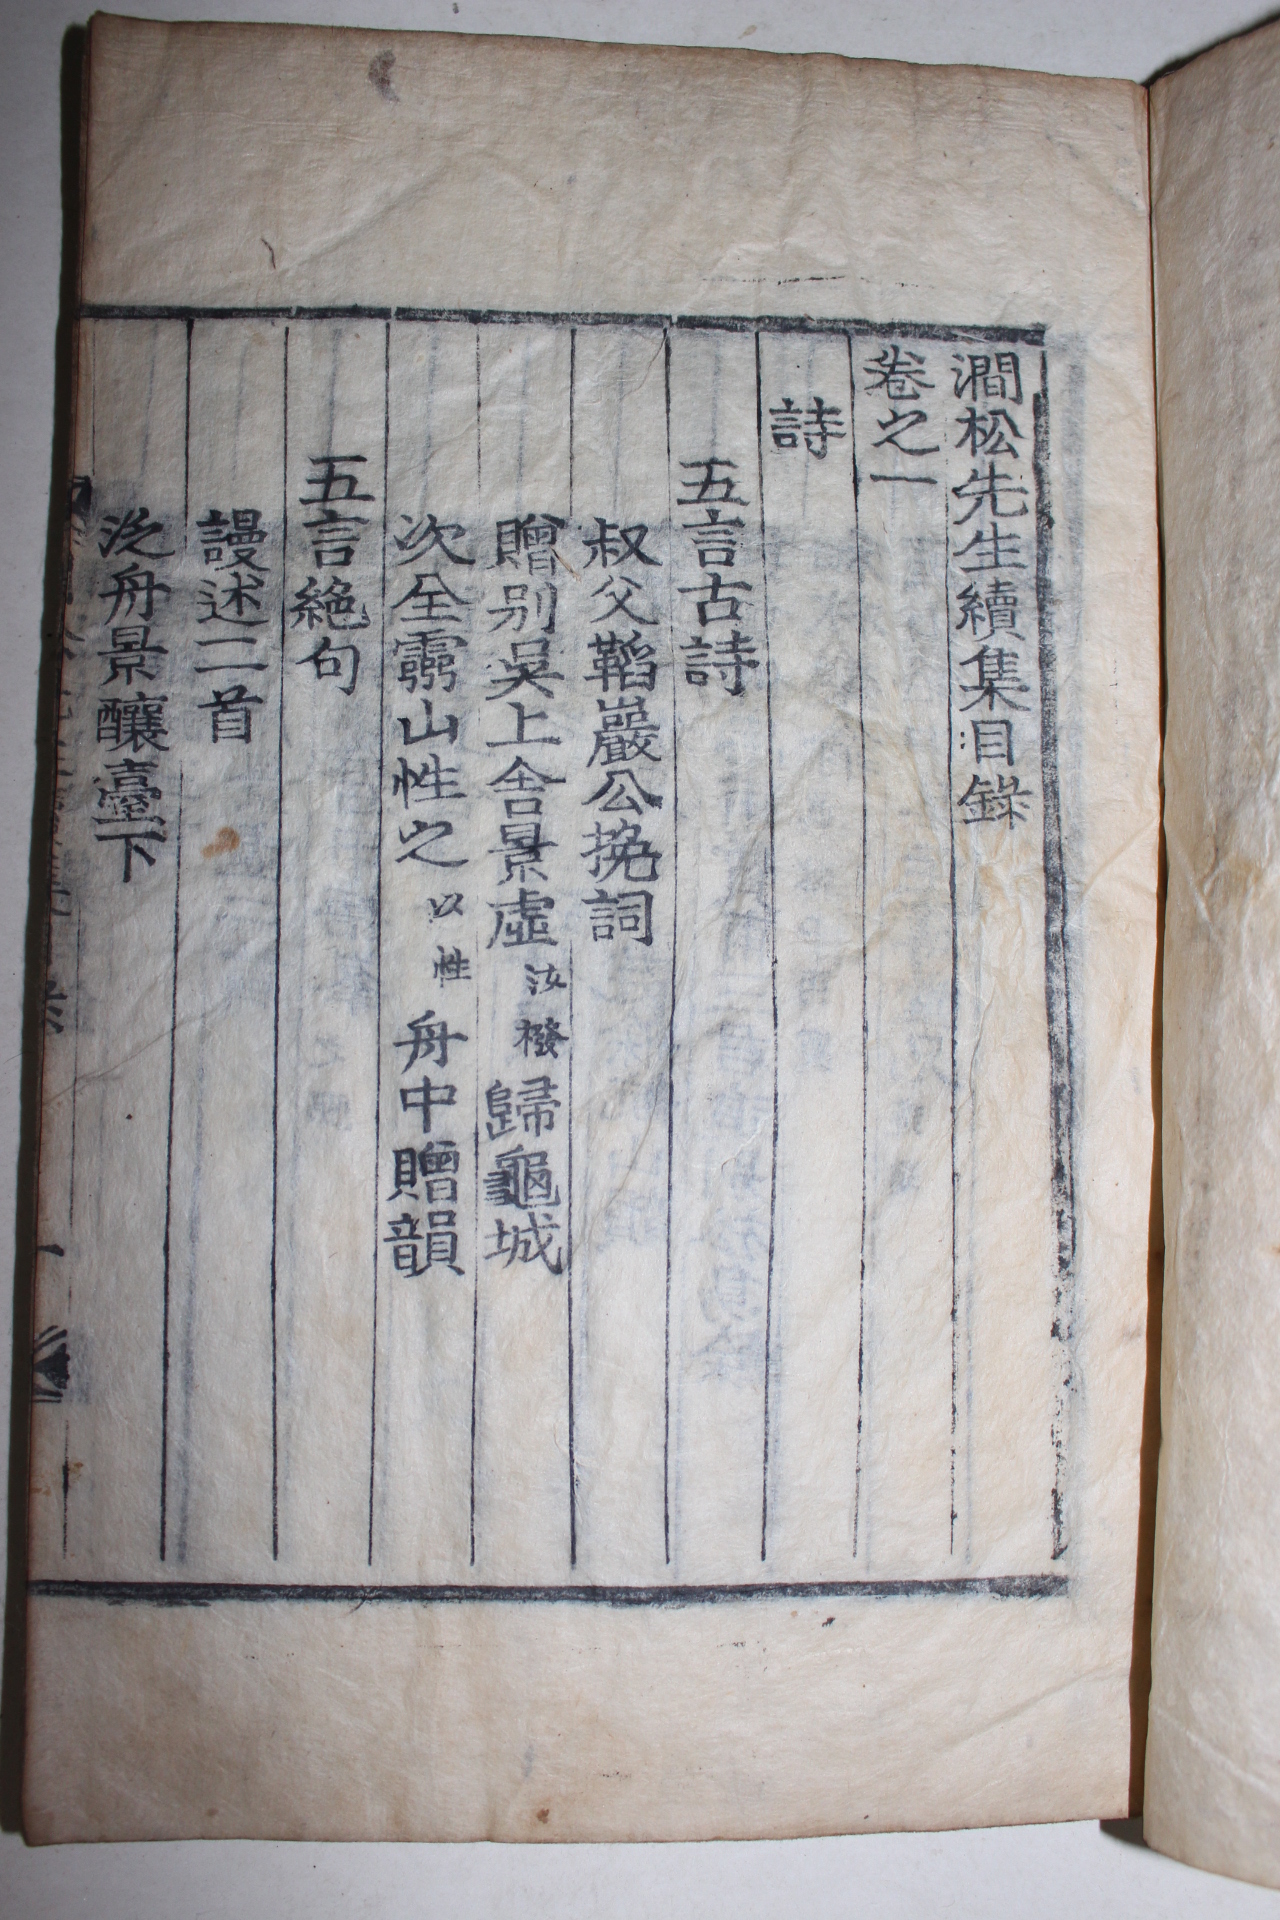 澗松先生續集目錄
卷之一
詩
五言古詩
叔父韜巖公挽詞
贈别吳上舍景虛汝橃歸龜城
次全靈山性之以性舟中贈韻
五言絕句
謾述二首
泛舟景釀臺下